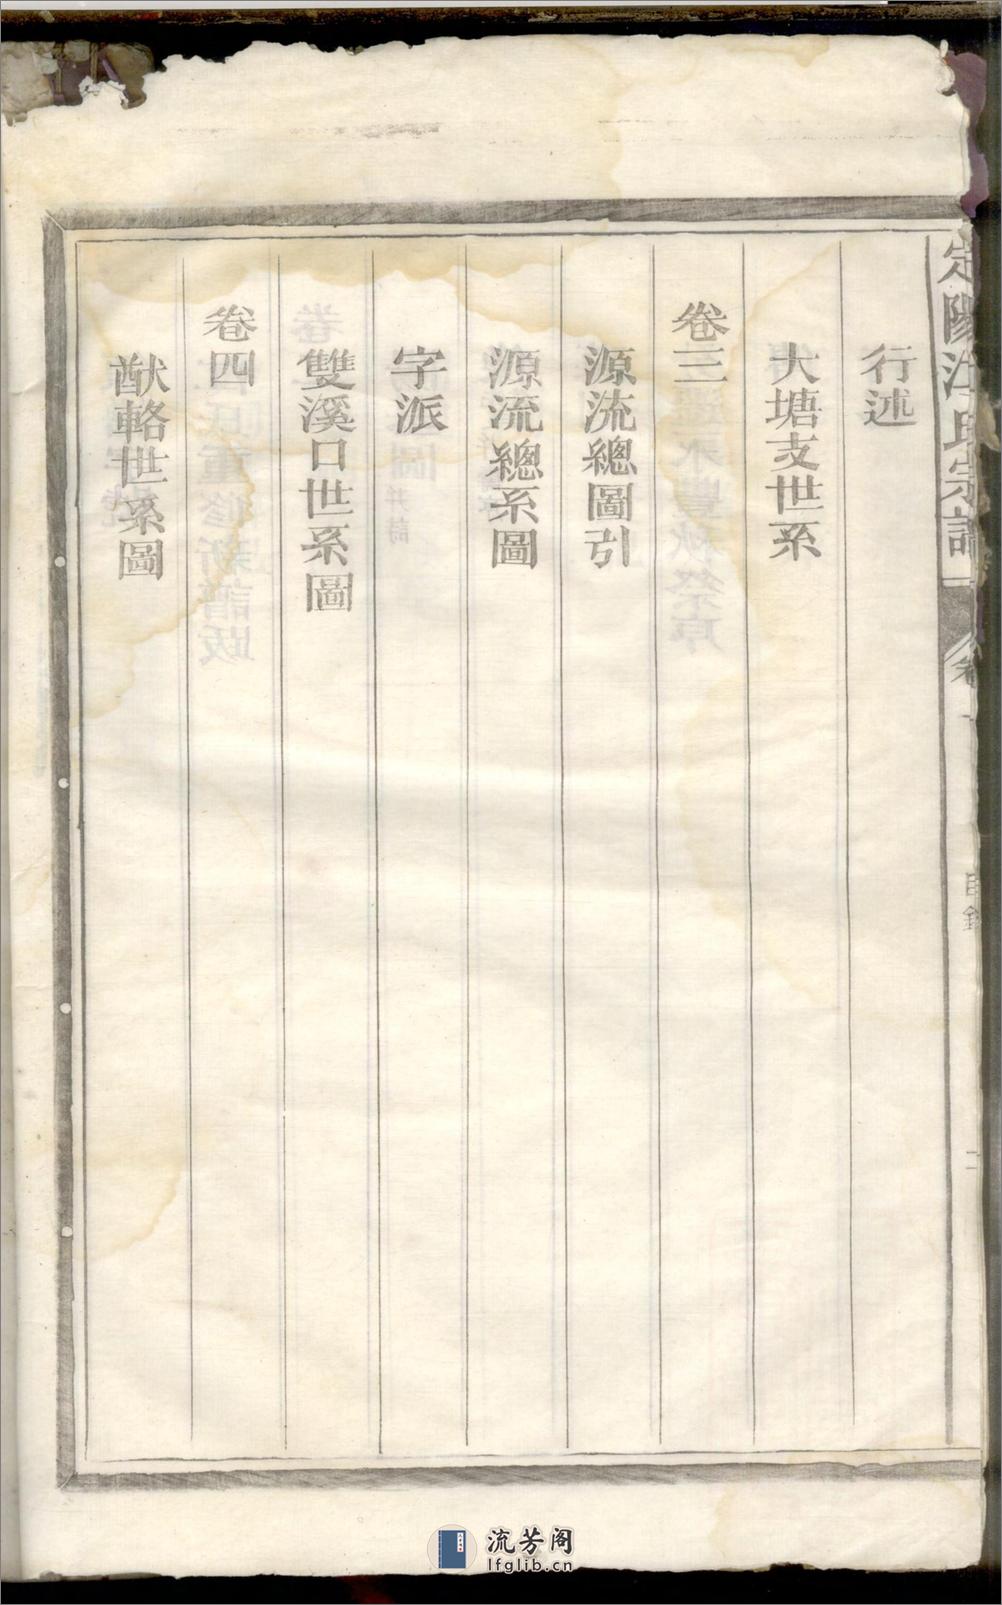 定陽江氏宗譜
卷一
目錄
行述
大塘支世系
卷三
源流總圖引
源流總系圖
字派
雙溪口世系圖
卷四
猷輅世系圖
流芳阁
lfglib.cn